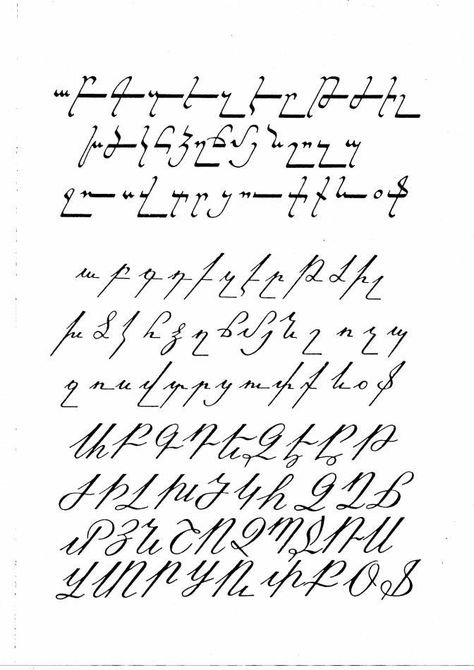 ա բ գ դ ե զ է ը թ ժ ի լ
խ ծ կ հ ձ ղ ճ մ յ ն շ ո չ պ
ջ ռ ս վ տ ր ց ու փ ք և օ ֆ
ա բ գ դ ե զ է ը թ ժ ի լ
խ ծ կ հ ձ ղ ճ մ յ ն շ ո չ պ
ջ ռ ս վ տ ր ց ու փ ք և օ ֆ
Ա Բ Գ Դ Ե Զ Է Ը Թ
Ժ Ի Լ Խ Ծ Կ Հ Ձ Ղ Ճ
Մ Յ Ն Շ Ո Չ Պ Ջ Ռ Ս
Վ Տ Ր Ց Ու Փ Ք Օ Ֆ